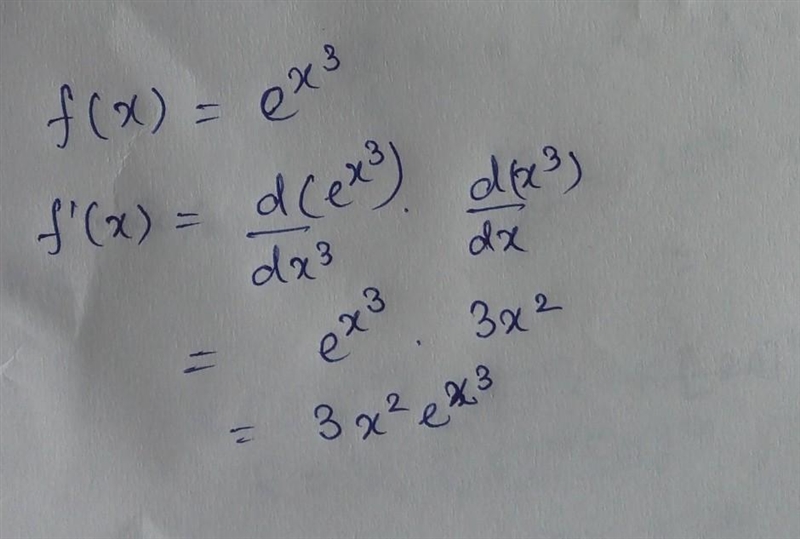 f(x) = e^{x^3}
f'(x) = \frac{d(e^{x^3})}{dx^3} . \frac{d(x^3)}{dx}
= e^{x^3} . 3x^2
= 3x^2 e^{x^3}